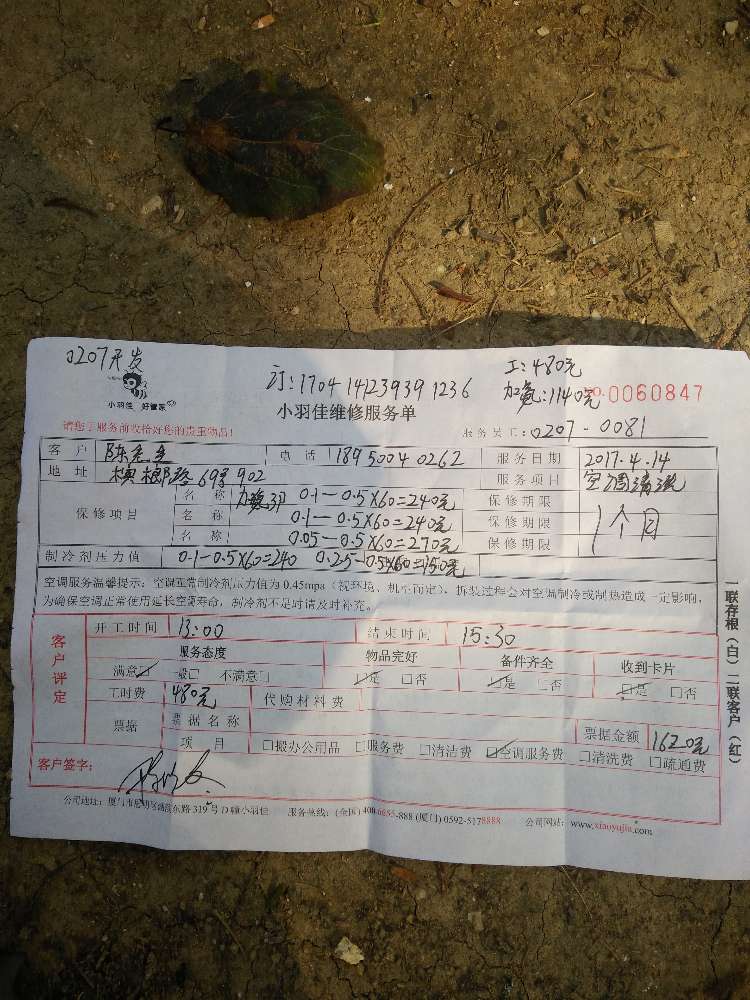 0207开发
订:1704 1412 3939 1236
工:480元
加氨:1140元
NO.0060847
小羽佳 好管家
小羽佳维修服务单
请您于服务前收拾好您的贵重物品!
服务员工:0207-0081
客户 电话 18950040262 服务日期 2017.4.14
地址 69号902 服务项目 空调清洗
保修项目 名称 0.1—0.5X60=240元 保修期限 1个月
名称 0.1—0.5X60=240元 保修期限
名称 0.05—0.5X60=270元 保修期限
制冷剂压力值 0.1-0.5X60=240 0.25-0.5X60=150元
空调服务温馨提示:空调正常制冷剂压力值为0.45mpa(视环境、机型而定)、拆装过程会对空调制冷或制热造成一定影响,
为确保空调正常使用延长空调寿命,制冷剂不足时请及时补充。
客户评定
开工时间 13:00 结束时间 15:30
服务态度 物品完好 备件齐全 收到卡片
满意☑ 一般□ 不满意□ ☑是 □否 ☑是 □否 ☑是 □否
工时费 480元 代购材料费
票据 票据名称 票据金额 1620元
项目 □搬办公用品 □服务费 □清洁费 ☑空调服务费 □清洗费 □疏通费
客户签字:
公司地址:厦门市思明区湖滨东路319号D幢小羽佳 服务热线:(全国)400-6655-888 (厦门)0592-5178888 公司网站:www.xiaoyujia.com
一联存根(白)二联客户(红)